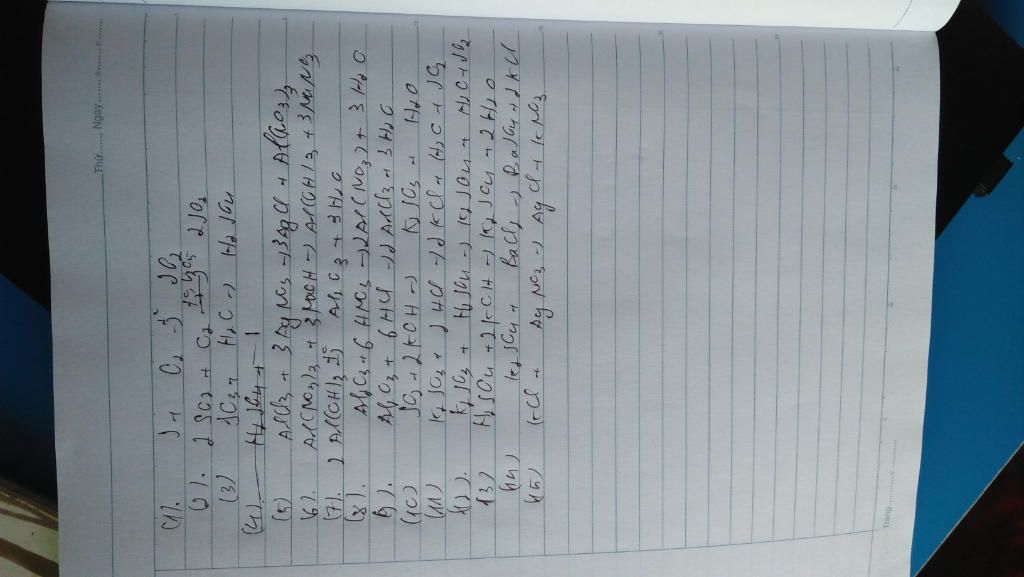 Thứ ........ Ngày ........
(1). S + O2 t° SO2
(2). 2 SO2 + O2 t° V2O5 2SO2
(3) SO3 + H2O → H2SO4
(4) H2SO4 +
(5) AlCl3 + 3AgNO3 → 3AgCl + Al(NO3)3
(6). Al(NO3)3 + 3NaOH → Al(OH)3 + 3NaNO3
(7). 2Al(OH)3 t° Al2O3 + 3H2O
(8). Al2O3 + 6HNO3 → 2Al(NO3)3 + 3H2O
9). Al2O3 + 6HCl → 2AlCl3 + 3H2O
(10) SO2 + 2KOH → K2SO3 + H2O
(11) K2SO3 + 2HCl → 2KCl + H2O + SO2
(12). K2SO3 + H2SO4 → K2SO4 + H2O + SO2
(13) H2SO4 + 2KOH → K2SO4 + 2H2O
(14) K2SO4 + BaCl2 → BaSO4 + 2KCl
(15) KCl + AgNO3 → AgCl + KNO3
Trang